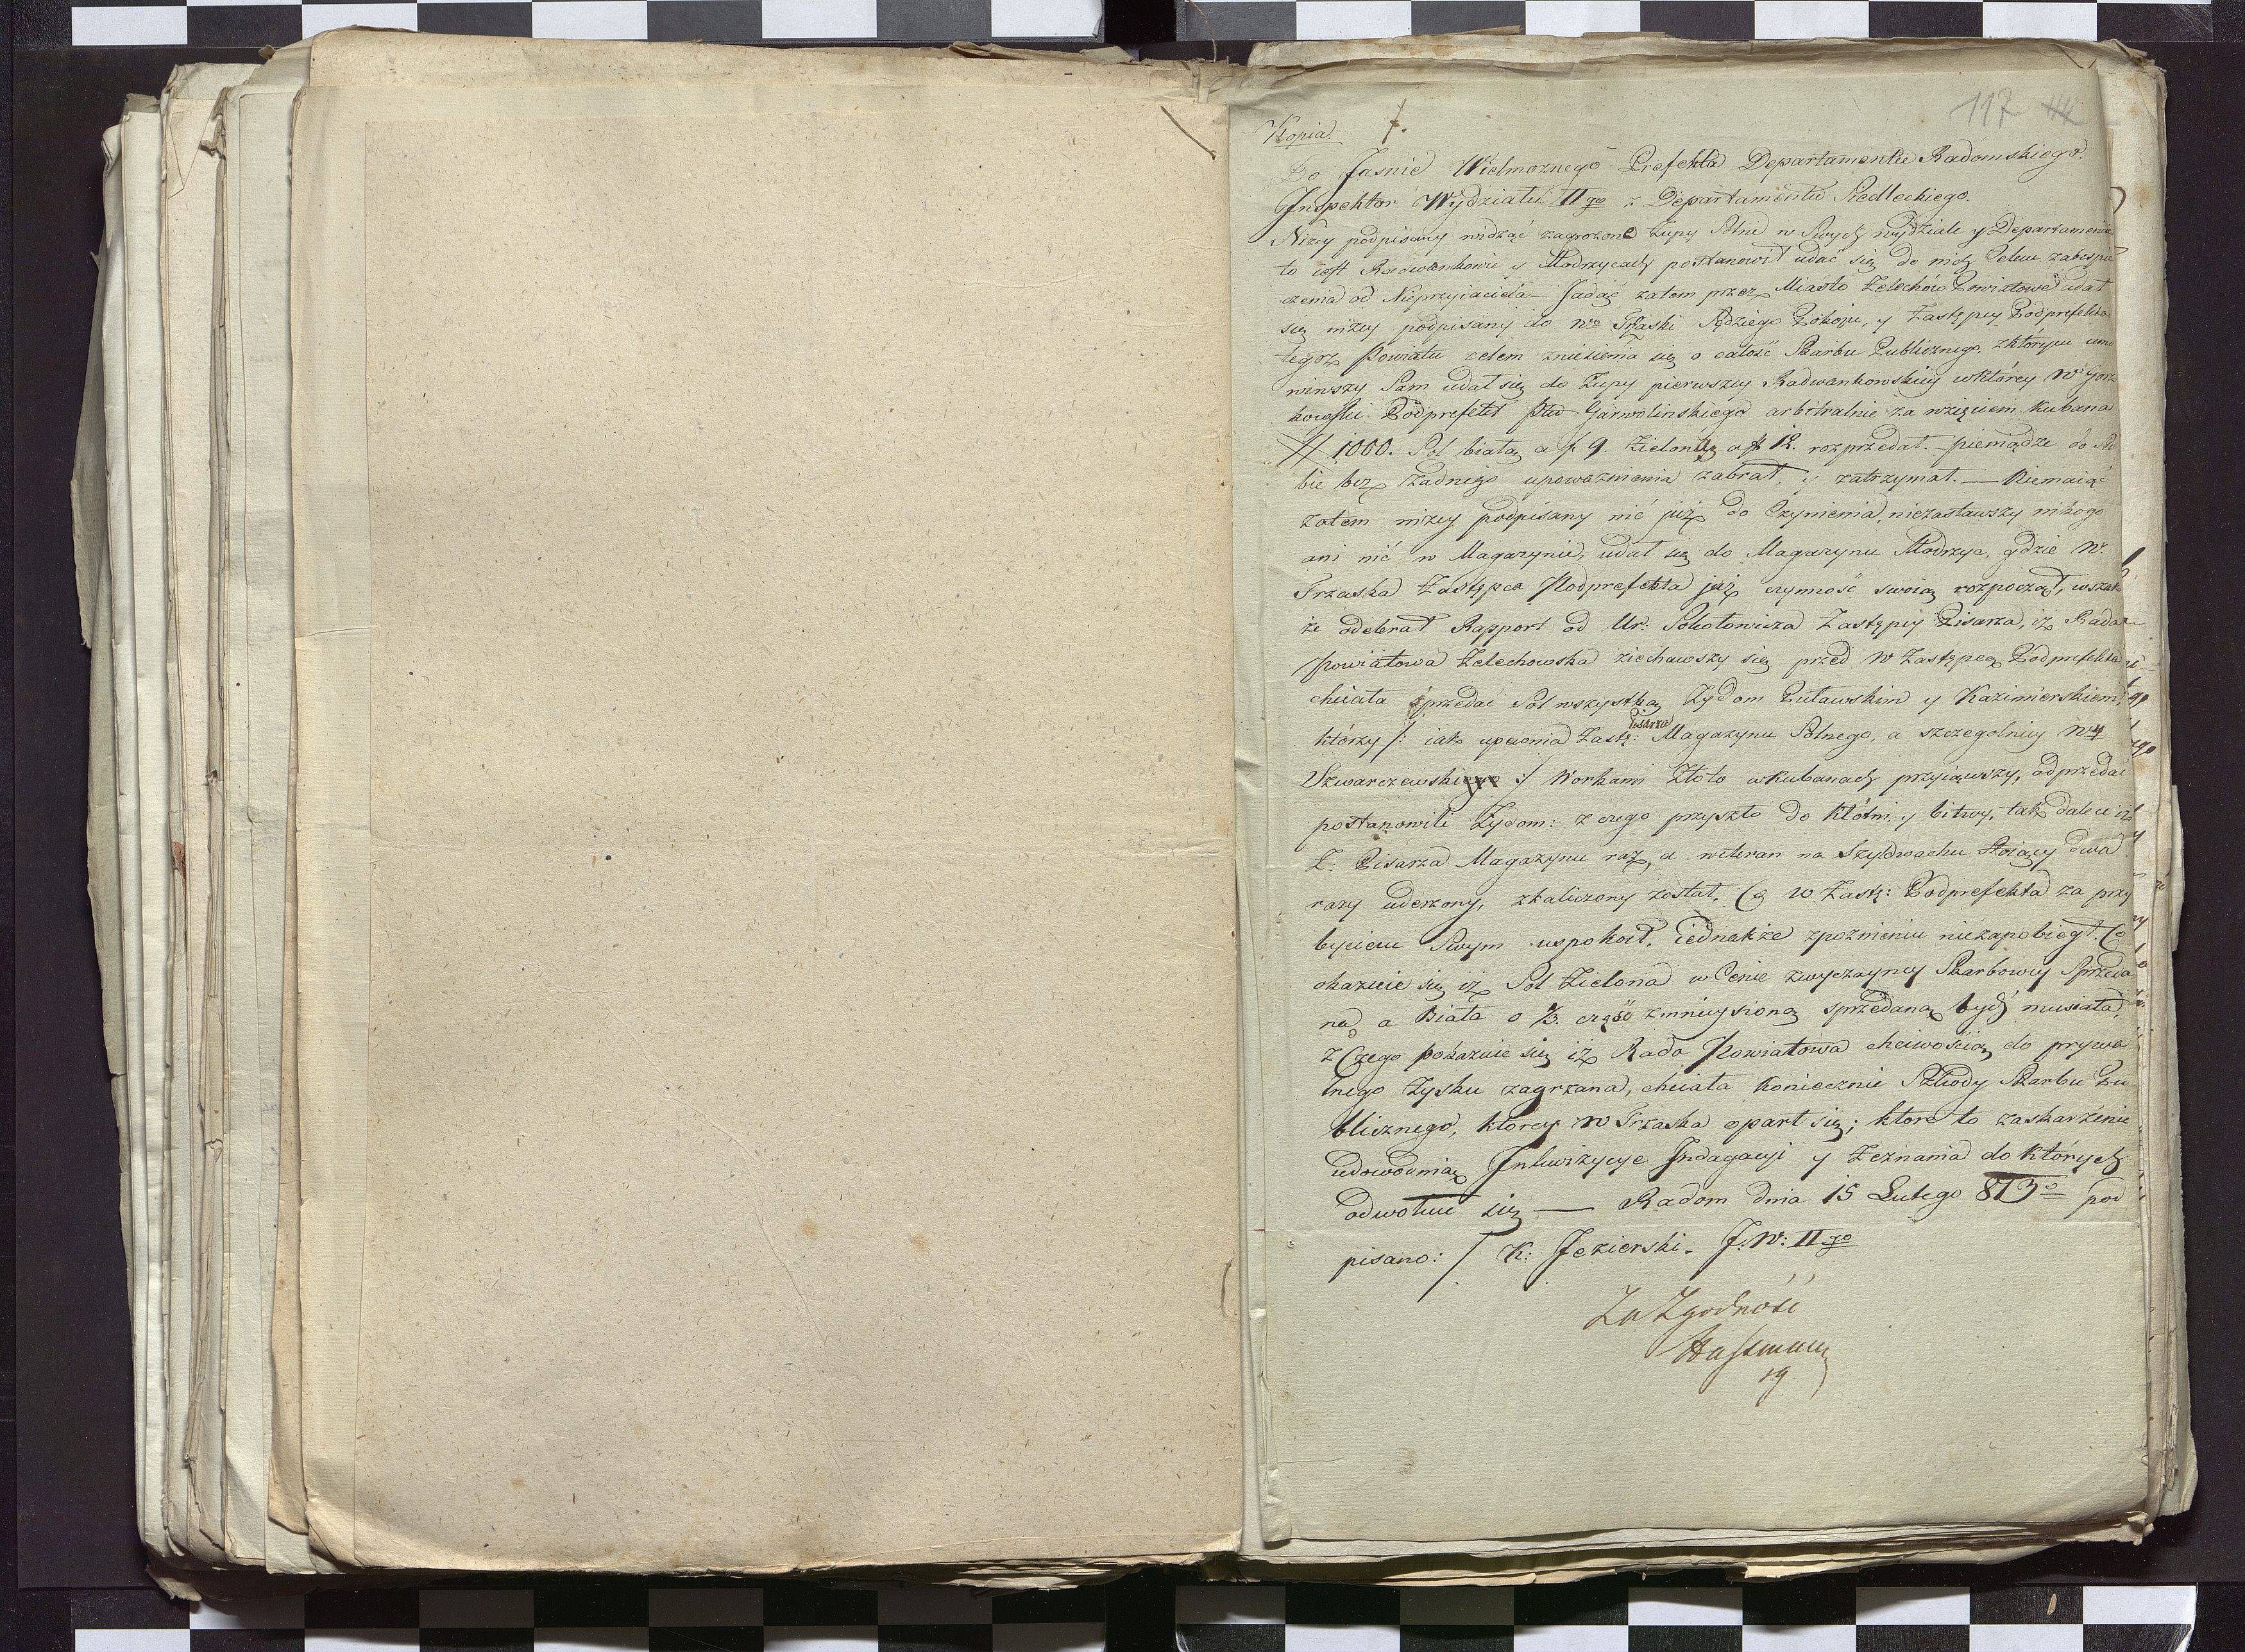 117
Kopia. 7.
Do Jasnie Wielmoznego Prefekta Departamentu Radomskiego.
Inspektor Wydziału II go z Departamentu Siedleckiego.
Niżey podpisany widząć zagrożone Żupy Solne w Swych wydziale y Departamencie
to iest Radwankowie y Modrzycach postanowił udać się do nich Celem zabespie
czenia od Nieprzyiaciela Jadąć zatem przez Miasto Żelechów Powiatowe udał
się niżey podpisany do Wo Trzaski Sędziego Pokoju, y Zastępcy Podprefekta
tegoż Powiatu celem zniesienia się o całość Skarbu Publicznego, zktórym umo
wiwszy Sam udał się do Żupy pierwszey Radwankowskiey wktórey W Gorz
kowski Podprefekt Ptu Garwolinskiego arbitralnie za wzięciem Kubana
# 1000. Sol białą a f 9. Zieloną a f 12. rozprzedał. pieniądze do Sie
bie bez żadnego upoważnienia zabrał, y zatrzymał. — Niemaiąć
zatem niżey podpisany nić już do Czynienia, niezastawszy nikogo
ani nić w Magazynie, udał się do Magazynu Modrzyc, gdzie W.
Trzaska Zastępca Podprefekta już czynność swoią rozpoczął, wszak
że odebrał Rapport od Ur: Sokołowicza Zastępcy Pisarza, iż Rada
Powiatowa Żelechowska ziechawszy się przed W Zastępcą Podprefekta
chciała sprzedać Sol wszystką Żydom Puławskim y Kazimierskiem,
którzy /: iak upewnia Zastę: Pisarza Magazynu Solnego, a szczegolniey Wy
Szwarczewski :/ Workami Złoto w Kubanach przyiąwszy, odprzedać
postanowili Żydom: z czego przyszło do kłótni y bitwy, tak dalece iż
Z: Pisarza Magazynu raz, a weteran na Szyldwachu Stoiący dwa
razy uderzony, zkaliczony został, Co W Zastę: Podprefekta za przy
byciem Swym uspokoił, iednakże zpoznieniu niezapobiegł. Co
okazuie się iż Sol Zielona w Cenie zwyczayney Skarbowey Sprzeda
na, a Biała o 1/3. część zmnieysioną sprzedaną bydź musiała,
z Czego pokazuie się iż Rada Powiatowa chciwością do prywa
tnego Zysku zagrzana, chciała koniecznie Szkody Skarbu Pu
blicznego, ktorey W Trzaska oparł się; ktore to zaskarżenie
udowodnią Inkwizycye Indagacyi y Zeznania do których
odwołuie się — Radom dnia 15 Lutego 813o pod
pisano: / K: Jezierski. J: W: II go
Za Zgodność